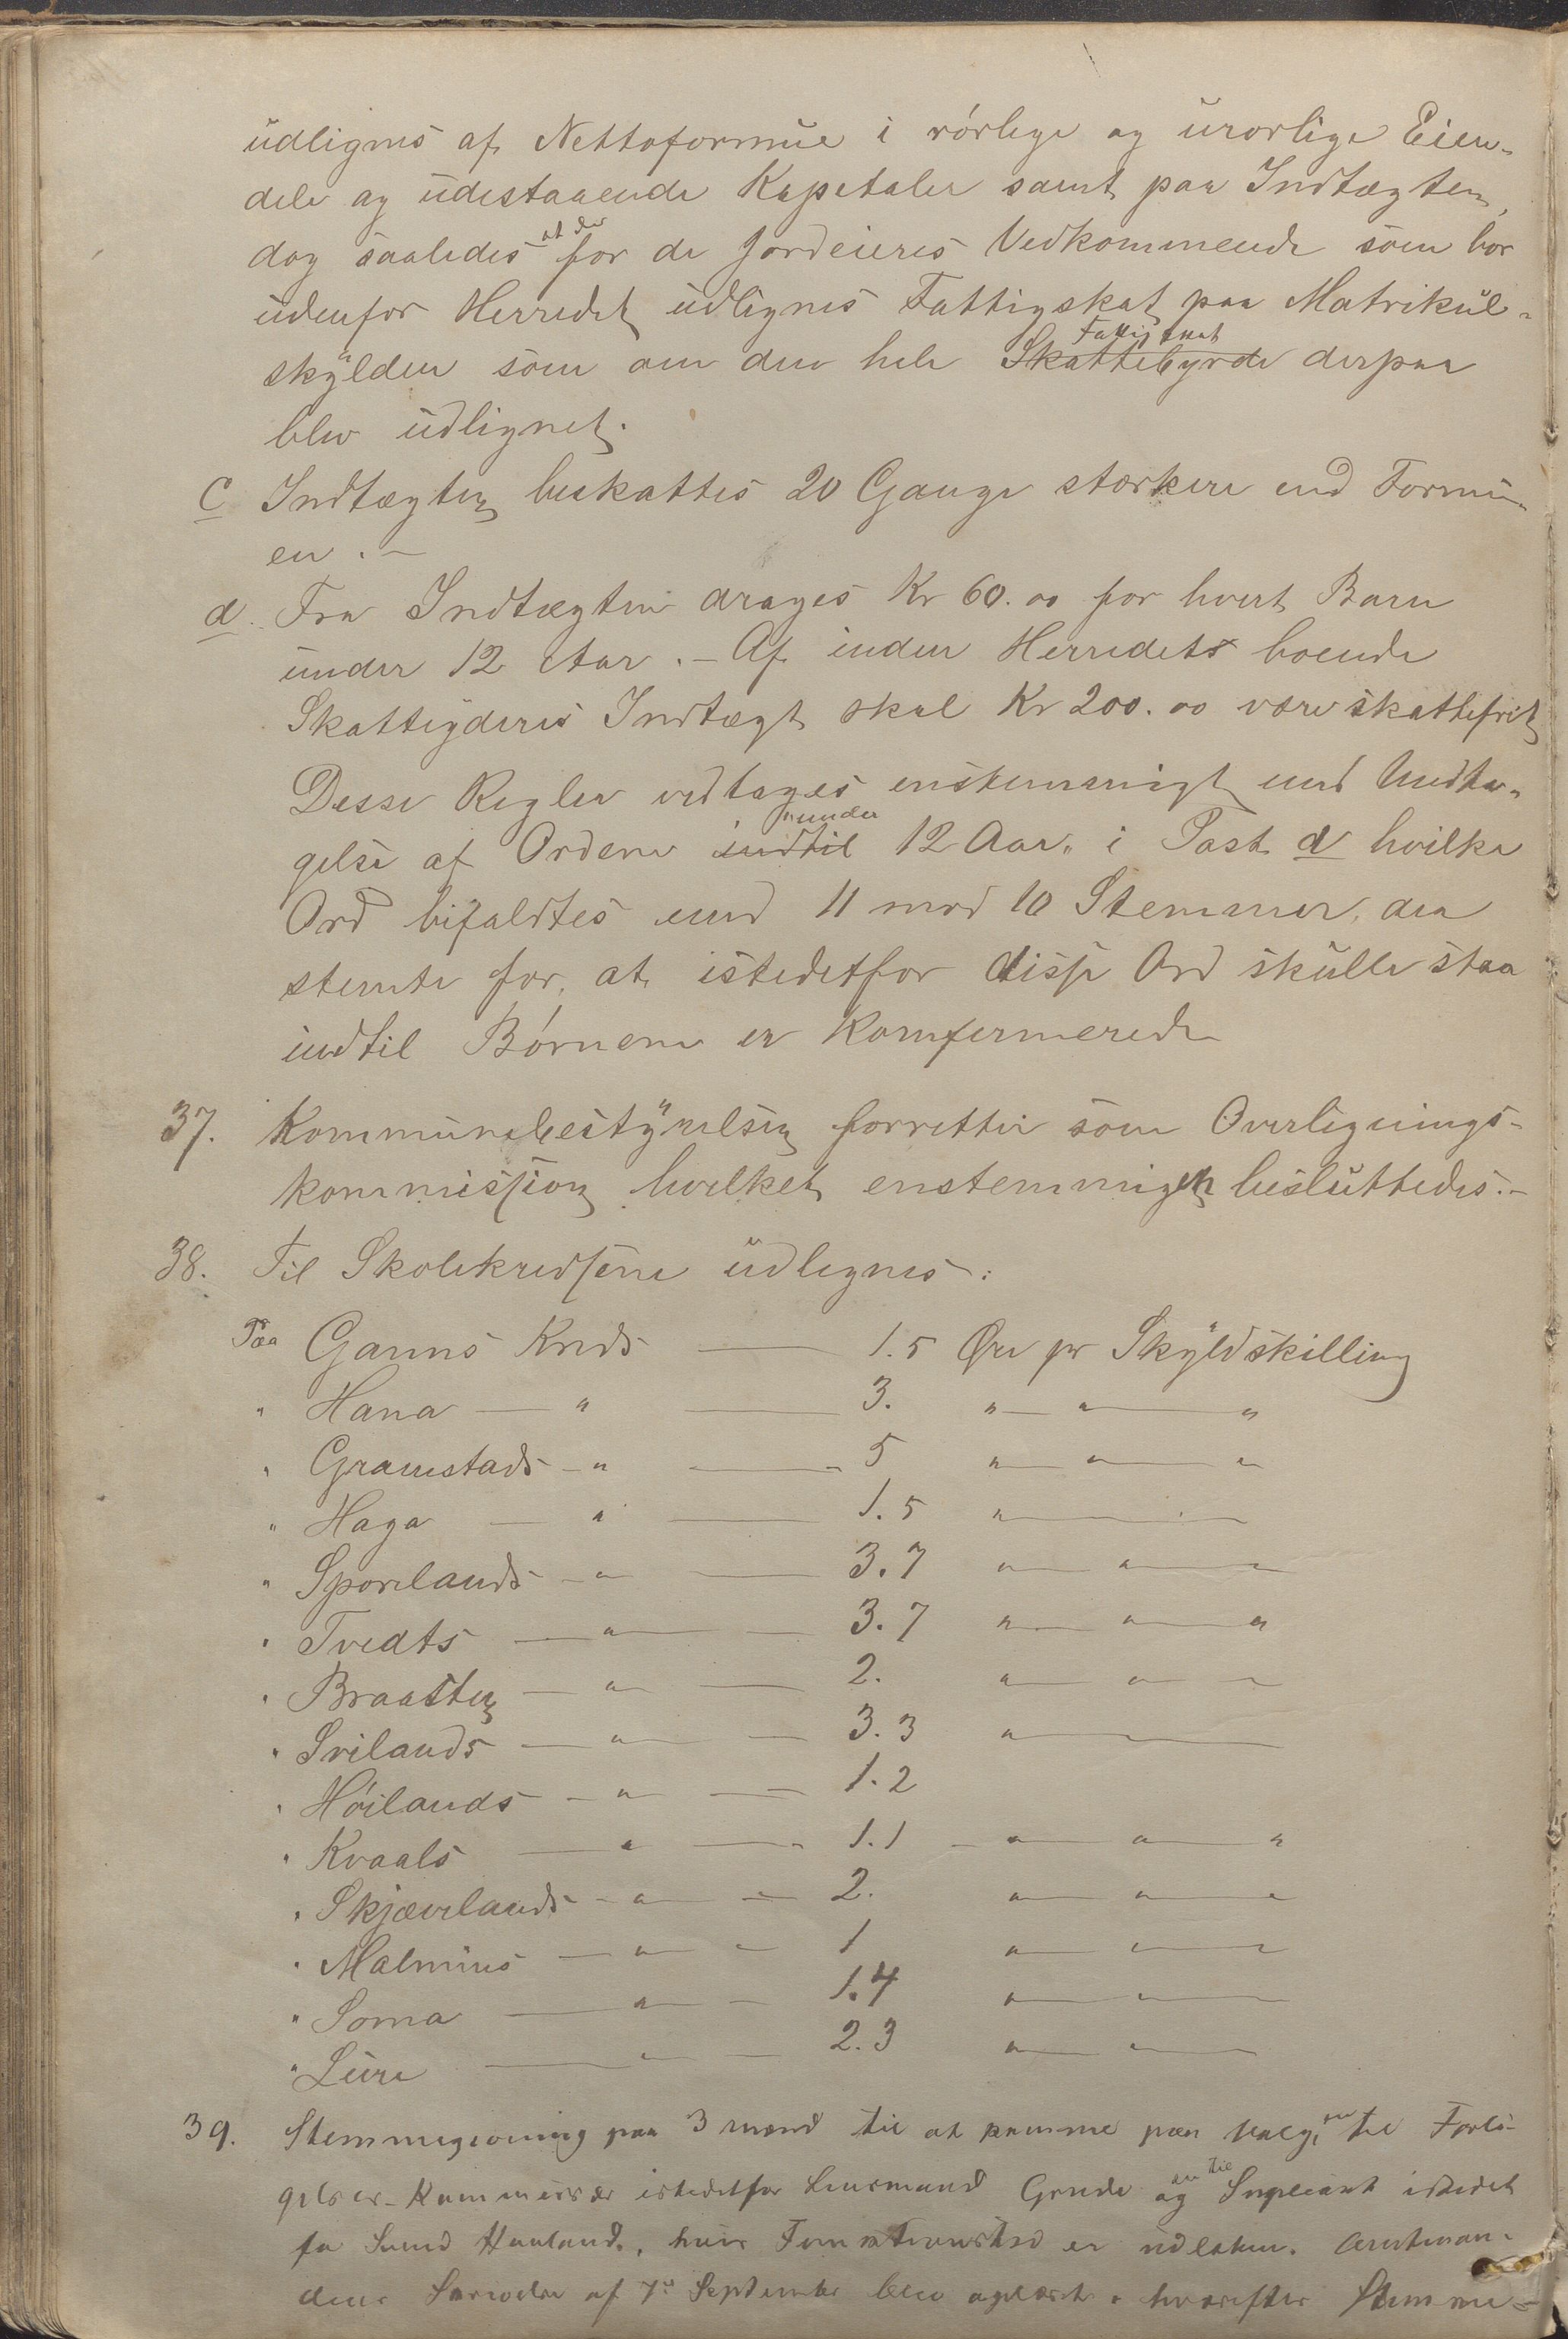 udlignes af Nettoformue i rørlige og urørlige Eien-
dele og udestaaende Kapitaler samt paa Indtægten,
dog saaledes at der for de Jordeieres Vedkommende som bor
udenfor Herredet udlignes Fattigskat paa Matrikul-
skylden som om den hele Skattebyrde Fattigskat derpaa
blev udlignet.
c Indtægten beskattes 20 Gange stærkere end Formu-
en.-
d. Fra Indtægten drages Kr 60.00 for hvert Barn
under 12 Aar.- Af inden Herredets boende
Skatteyderes Indtægt skal Kr 200.00 være skattefrit
Desse Regler vedtages enstemmigt med Undta-
gelse af Ordene indtil "under 12 Aar" i Post d hvilke
Ord bifaldtes med 11 mod 10 Stemmer, der
stemte for, at istedetfor disse Ord skulle staa
indtil Børnene er Komfermerede
37. Kommunebestyrelsen forretter som Overlignings-
kommission hvilket enstemmigen besluttedes.-
38. Til Skolekredsene udlignes:
Paa Ganns Kreds — 1.5 Øre pr Skyldskilling
" Hana — " — 3. " — " — "
" Gramstads — " — 5 " — " — "
" Haga — " — 1.5 " —
" Sporelands — " — 3.7 " — " — "
" Tvedts — " — 3.7 " — " — "
" Braasten — " — 2. " — " — "
" Svilands — " — 3.3 " —
" Høilands — " — 1.2
" Kvaals — " — 1.1 — " — " — "
" Skjævelands — " — 2. " — " — "
" Malmins — " — 1 " — " — "
" Soma — " — 1.4 " — " —
" Lura — " — 2.3 " — " —
39. Stemmegivning paa 3 mænd til at komme paa Valg til Forli-
gelses-Kommissær istedetfor Lensmand Grude og en til Supleant istedet
for Svend Haaland, hvis Funktionstid er udløben. Amtman-
dens Skrivelse af 7de September blev oplæst, hvorefter Stemme-